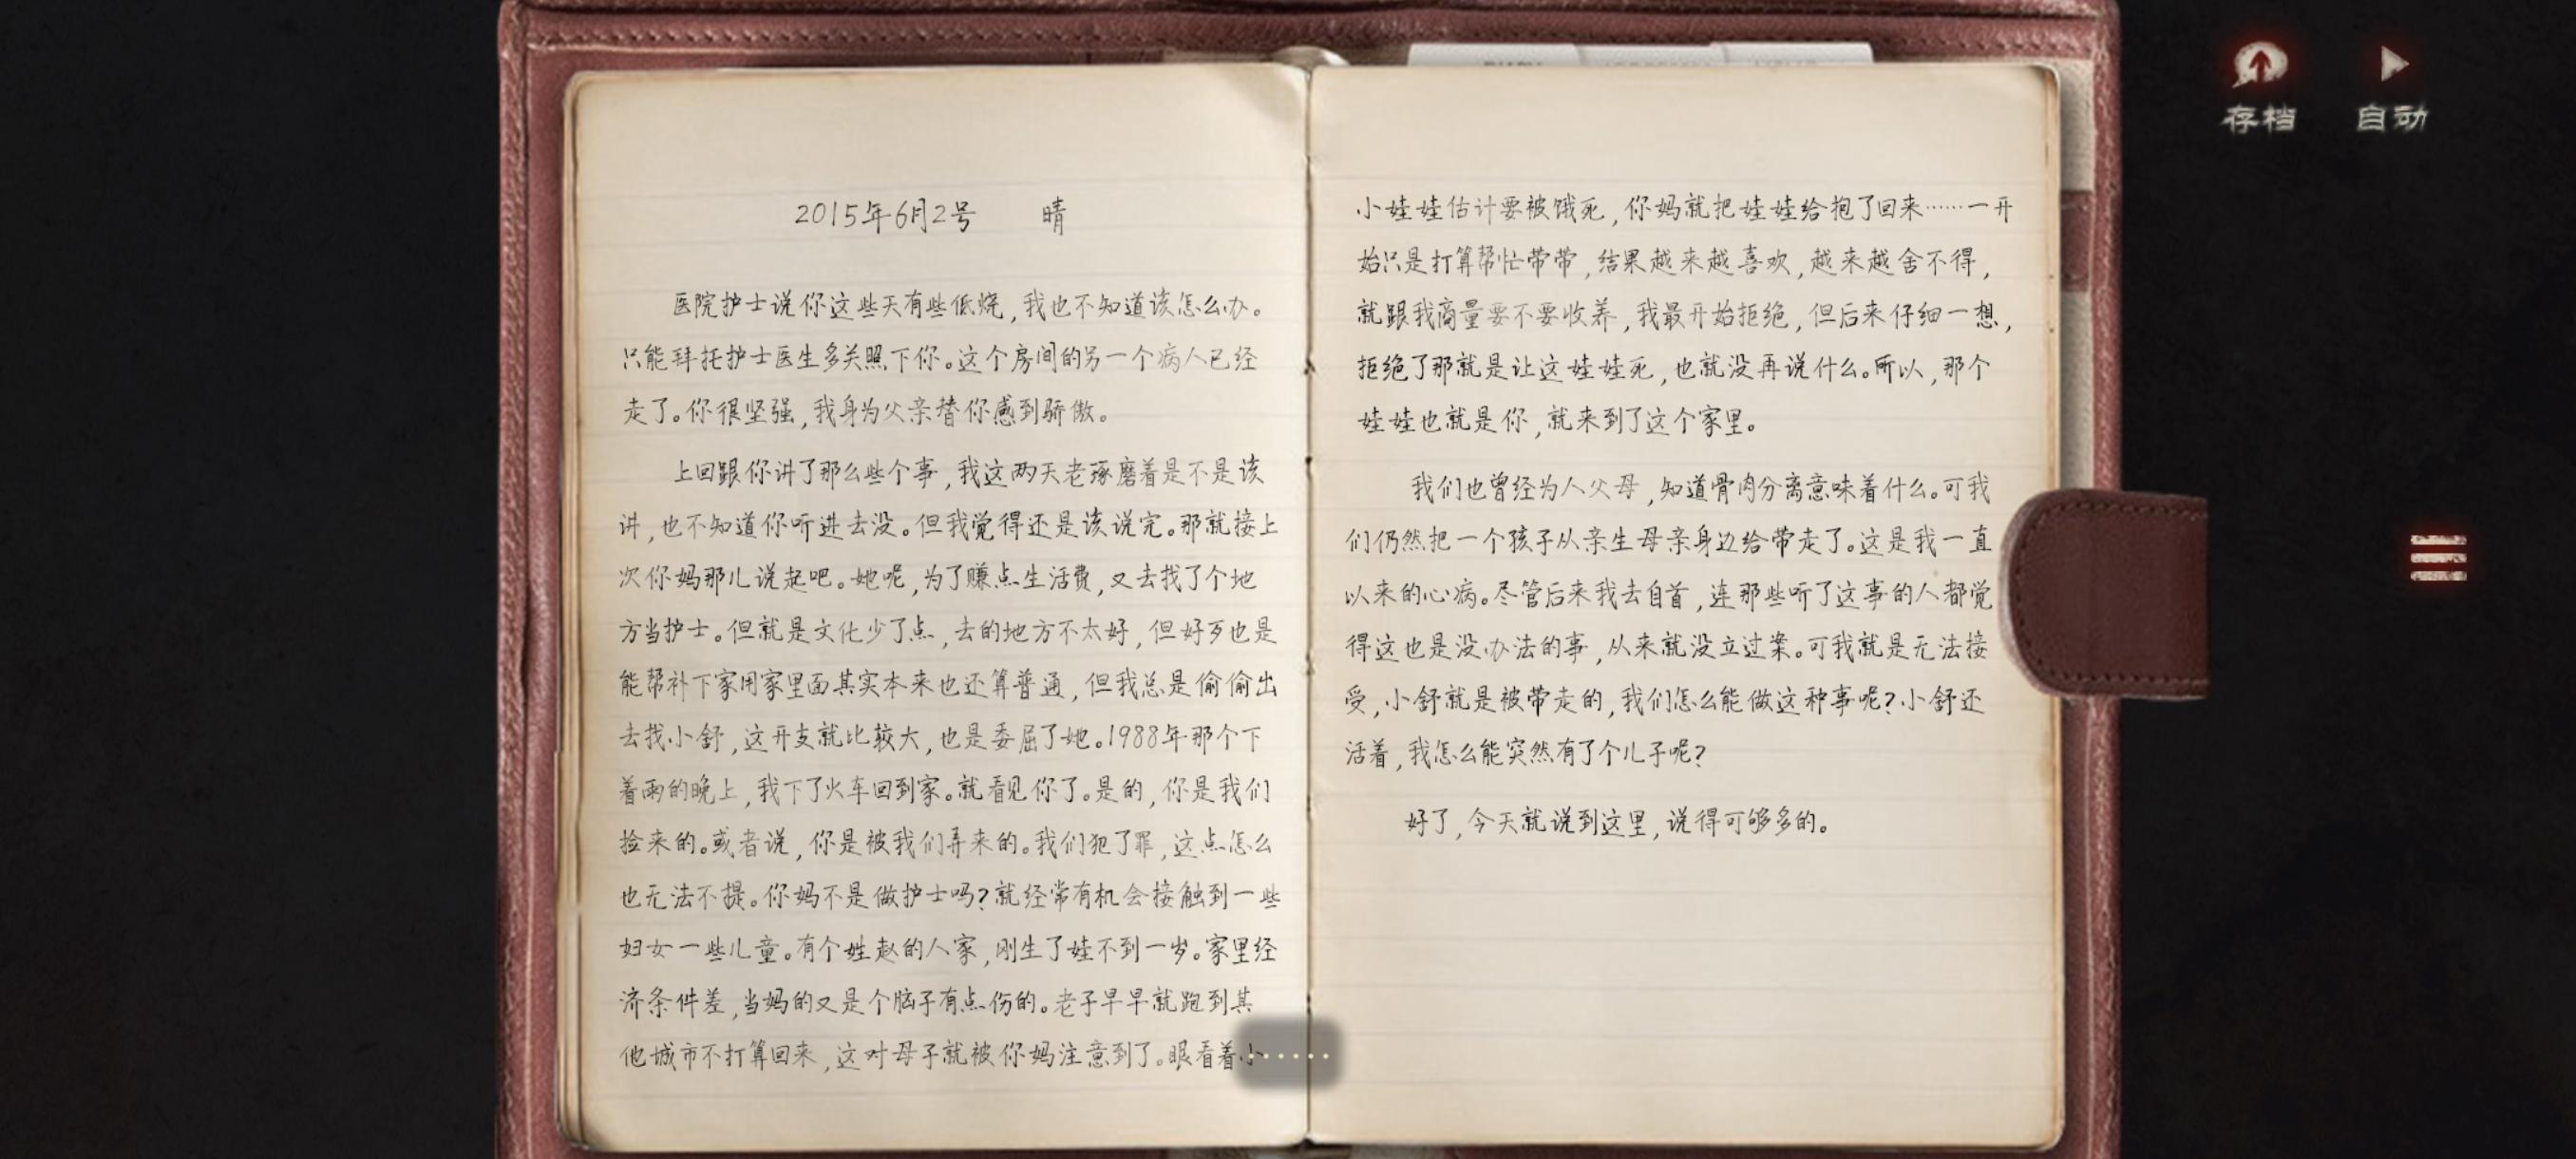 存档 自动
2015年6月2号 晴
医院护士说你这些天有些低烧，我也不知道该怎么办。
只能拜托护士医生多关照下你。这个房间的另一个病人已经
走了。你很坚强，我身为父亲替你感到骄傲。
上回跟你讲了那么些个事，我这两天老琢磨着是不是该
讲，也不知道你听进去没。但我觉得还是该说完。那就接上
次你妈那儿说起吧。她呢，为了赚点生活费，又去找了个地
方当护士。但就是文化少了点，去的地方不太好，但好歹也是
能帮补下家用家里面其实本来也还算普通，但我总是偷偷出
去找小舒，这开支就比较大，也是委屈了她。1988年那个下
着雨的晚上，我下了火车回到家。就看见你了。是的，你是我们
捡来的。或者说，你是被我们弄来的。我们犯了罪，这点怎么
也无法不提。你妈不是做护士吗？就经常有机会接触到一些
妇女一些儿童。有个姓赵的人家，刚生了娃不到一岁。家里经
济条件差，当妈的又是个脑子有点伤的。老子早早就跑到其
他城市不打算回来，这对母子就被你妈注意到了。眼看着小
······
小娃娃估计要被饿死，你妈就把娃娃给抱了回来……一开
始只是打算帮忙带带，结果越来越喜欢，越来越舍不得，
就跟我商量要不要收养，我最开始拒绝，但后来仔细一想，
拒绝了那就是让这娃娃死，也就没再说什么。所以，那个
娃娃也就是你，就来到了这个家里。
我们也曾经为人父母，知道骨肉分离意味着什么。可我
们仍然把一个孩子从亲生母亲身边给带走了。这是我一直
以来的心病。尽管后来我去自首，连那些听了这事的人都觉
得这也是没办法的事，从来就没立过案。可我就是无法接
受，小舒就是被带走的，我们怎么能做这种事呢？小舒还
活着，我怎么能突然有了个儿子呢？
好了，今天就说到这里，说得可够多的。